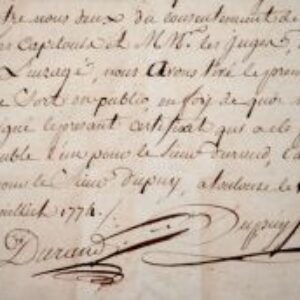 tre nous deux du consentement de
es capitouls et MM. les juges,
Luragé, nous avons tiré le prem
e Sort en public, en foy de quoi
igné le present certificat qui a eté
uble l'un pour le Sieur durand, l'a
pour le Sieur Dupuy, a toulouse le
juillet 1774.
Durand Dupuy